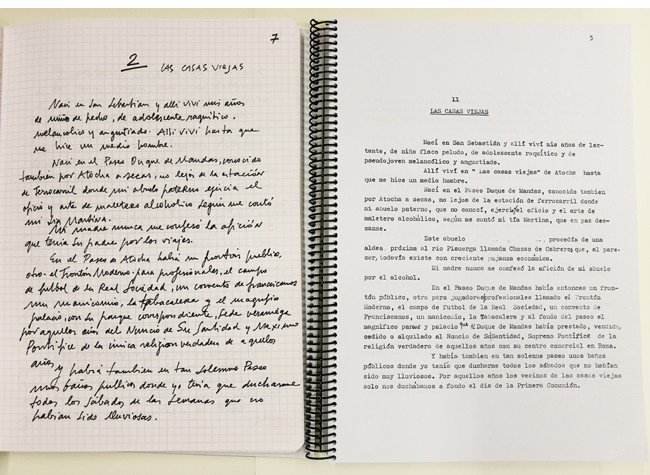 7
2 LAS CASAS VIEJAS
Nací en San Sebastián y allí viví mis años
de niño de pecho, de adolescente raquítico,
melancólico y angustiado. Allí viví hasta que
me hice un medio hombre.
Nací en el Paseo Duque de Mandas, conocido
también por Atocha a secas, no lejos de la estación
de ferrocarril donde mi abuelo paterno ejercía el
oficio y arte de maletero alcohólico según me contó
mi tía Martina.
Mi madre nunca me confesó la afición
que tenía su padre por los viajes.
En el Paseo de Atocha había un frontón público,
otro el frontón Moderno para profesionales, el campo
de futbol de la Real Sociedad, un convento de franciscanos
un manicomio, la Tabacalera y el magnífico
palacio, con su parque correspondiente, sede veraniega
por aquellos años del Nuncio de Su Santidad y Máximo
Pontífice de la única religión verdadera de aquellos
años
y había también en tan solemne Paseo
unos baños publicos donde yo tenía que ducharme
todos los Sábados de las semanas que no
habían sido lluviosas.
5
11
LAS CASAS VIEJAS
Nací en San Sebastián y allí viví mis años de lac-
tante, de niño flaco peludo, de adolescente raquítico y de
pseudojoven melancólico y angustiado.
Allí viví en " Las casas viejas" de Atocha hasta
que me hice un medio hombre.
Nací en el Paseo Duque de Mandas, conocido también por
Atocha a secas, no lejos de la estación de ferrocarril donde
mi abuelo paterno, que no conocí, ejercía el oficio y el arte de
maletero alcohólico, según me contó mi tía Martina, que en paz des-
canse.
Este abuelo procedía de una
aldea próxima al río Pisuerga llamada Chozas de Cabrero; que, al pare-
cer, todavía existe con creciente pujanza económica.
Mi madre nunca me confesó la afición de mi abuelo
por el alcohol.
En el Paseo Duque de Mandas había entonces un fron-
tón público, otro para jugadores profesionales llamado el Frontón
Moderno, el campo de futbol de la Real Sociedad, un convento de
Franciscanos, un manicomio, la Tabacalera y al fondo del paseo el
magnífico parque y palacio que el Duque de Mandas había prestado, vencido,
cedido o alquilado al Nuncio de Su Santidad, Supremo Pontífice de la
religión verdadera de aquellos años con su centro comercial en Roma.
Y había tambien en tan solemne paseo unos baños
públicos donde yo tenía que ducharme todos los sábados que no habían
sido muy lluviosos. Por aquellos años los vecinos de las casas viejas
solo nos duchábamos a fondo el día de la Primera Comunión.